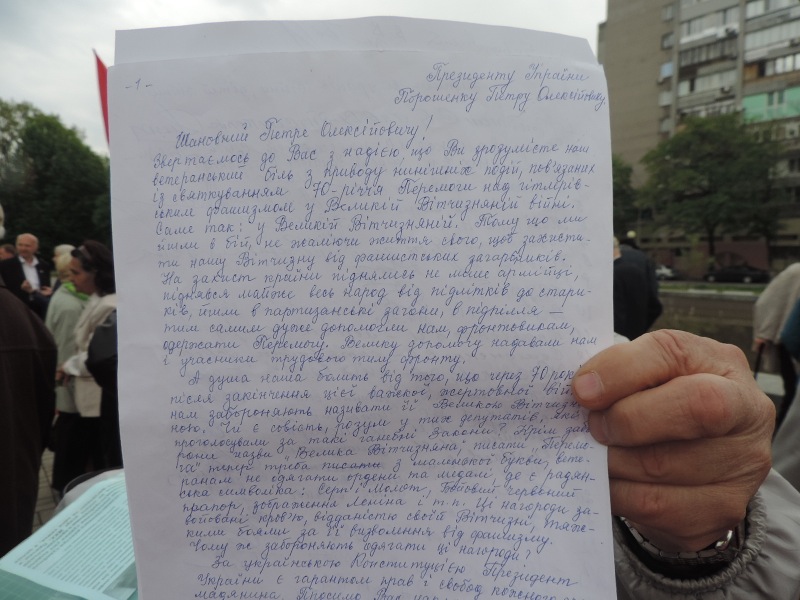 -1-
Президенту України
Порошенку Петру Олексійовичу.
Шановний Петре Олексійовичу!
Звертаємось до Вас з надією, що Ви зрозумієте наш
ветеранський біль з приводу нинішніх подій, пов'язаних
із святкуванням 70-річчя Перемоги над гітлерів-
ським фашизмом у Великій Вітчизняній війні.
Саме так: у Великій Вітчизняній. Тому що ми
йшли в бій, не жаліючи життя свого, щоб захисти-
ти нашу Вітчизну від фашистських загарбників.
На захист країни піднялись не лише армійці,
піднявся майже весь народ від підлітків до стари-
ків, йшли в партизанські загони, в підпілля —
тим самим дуже допомогли нам, фронтовикам,
одержати Перемогу. Велику допомогу надавали нам
і учасники трудового тилу фронту.
А душа наша болить від того, що через 70 років
після закінчення цієї важкої, жертовної
нам забороняють називати її Великою Вітчизня
ною. Чи є совість, розум у тих депутатів, які
проголосували за такі ганебні Закони? Крім
рони назви „Велика Вітчизняна", писати „Перемо-
га" тепер треба писати з маленької букви, вете-
ранам не одягати ордени та медалі, де є радян-
ська символіка: Серп і Молот, Бойовий червоний
прапор, зображення Леніна і т.п. Ці нагороди за-
войовані кров'ю, відданістю своїй Вітчизні, тяж-
кими боями за її визволення від фашизму.
Чому ж забороняють одягати ці нагороди?
За українською Конституцією Президент
України є гарантом прав і свобод кожного
мадянина. Просимо Вас